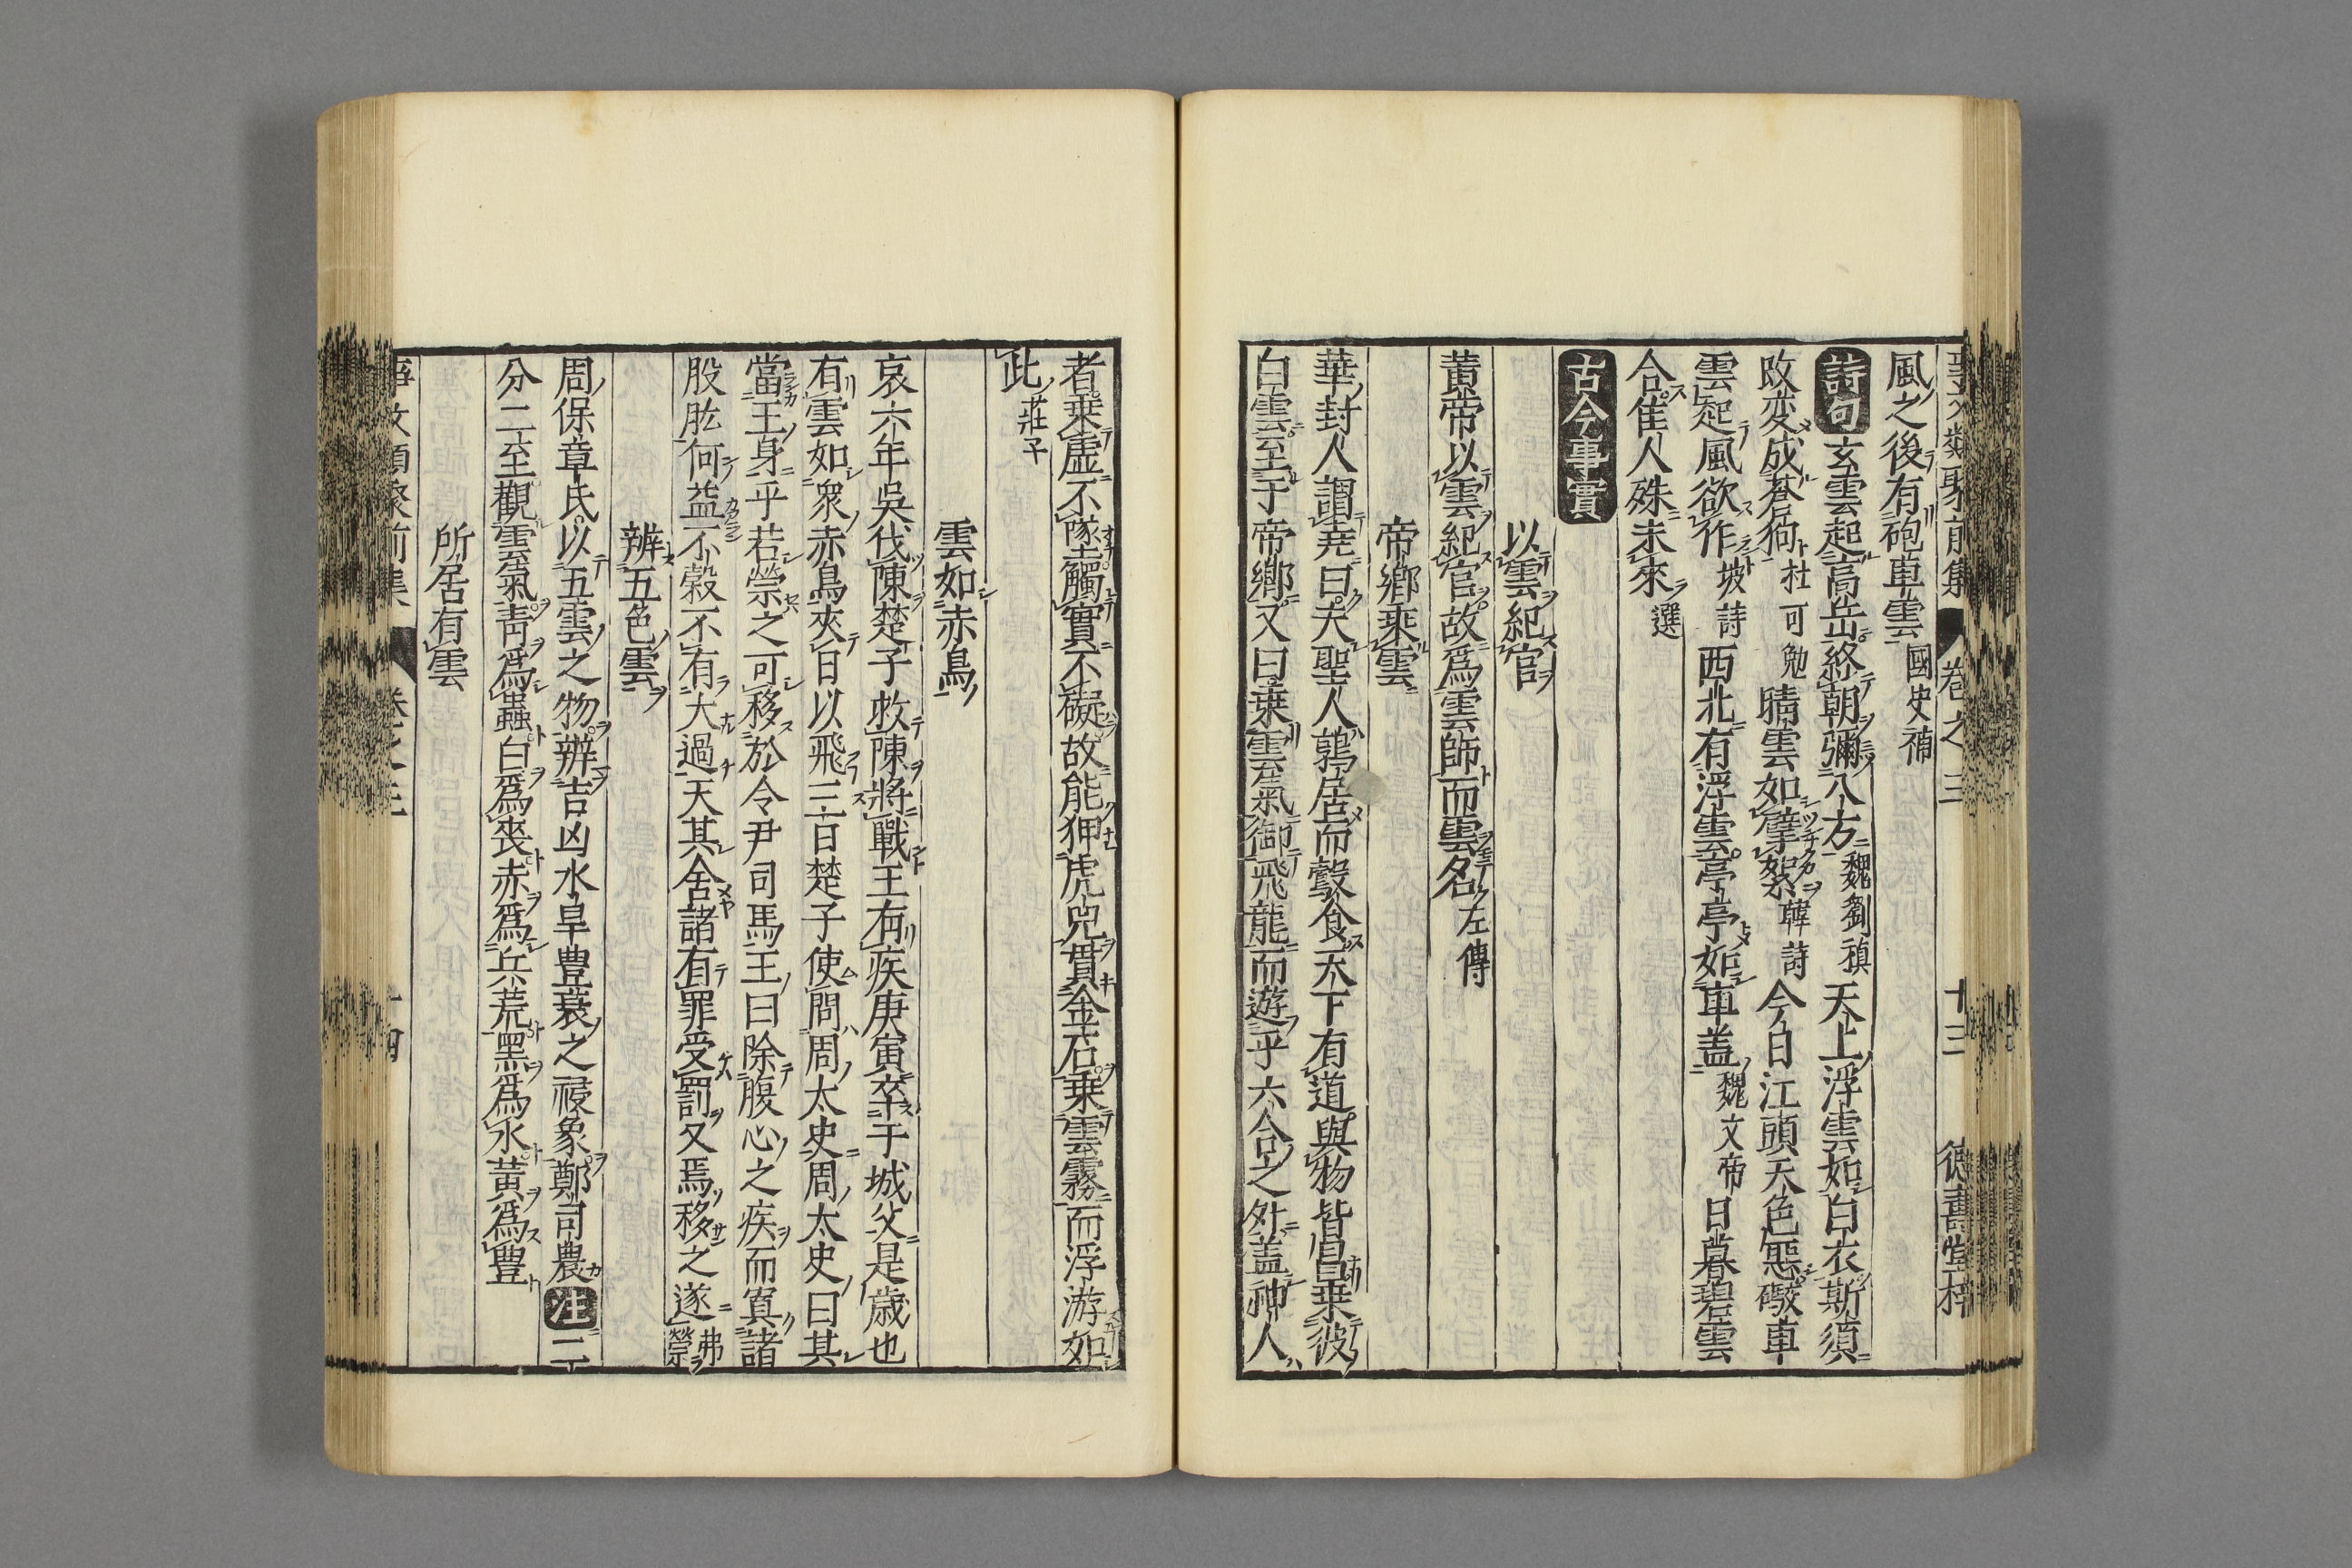 事文類聚前集 卷之三 十三 德壽堂梓
風之後有砲車雲 國史補
詩句 玄雲起高岳終朝彌八方 魏劉禎 天上浮雲如白衣斯須
改変成蒼狗 杜 可勉 晴雲如擘絮 韓詩 今日江頭天色惡礮車
雲起風欲作 坡詩 西北有浮雲亭亭如車盖 魏文帝 日暮碧雲
合佳人殊未來 選
古今事實
以雲紀官
黄帝以雲紀官故爲雲師而雲名 左傳
帝鄉乘雲
華封人謂堯曰夫聖人鶉居而鷇食天下有道與物皆昌乗彼
白雲至于帝鄉又曰乗雲氣御飛龍而遊乎六合之外盖神人
者乗虛不墜觸實不礙故能狎虎兕貫金石乗雲霧而浮游如
此 莊子
雲如赤鳥
哀六年吳伐陳楚子救陳將戰王有疾庚寅卒于城父是歳也
有雲如衆赤鳥夾日以飛三日楚子使問周太史周太史曰其
當王身乎若禜之可移於令尹司馬王曰除腹心之疾而寘諸
股肱何益不穀不有大過天其夭諸有罪受罰又焉移之遂弗禜
辨五色雲
周保章氏以五雲之物辨吉凶水旱豊荒之祲象鄭司農 注 二
分二至觀雲氣青爲蟲白爲喪赤爲兵荒黑爲水黄爲豊
所居有雲